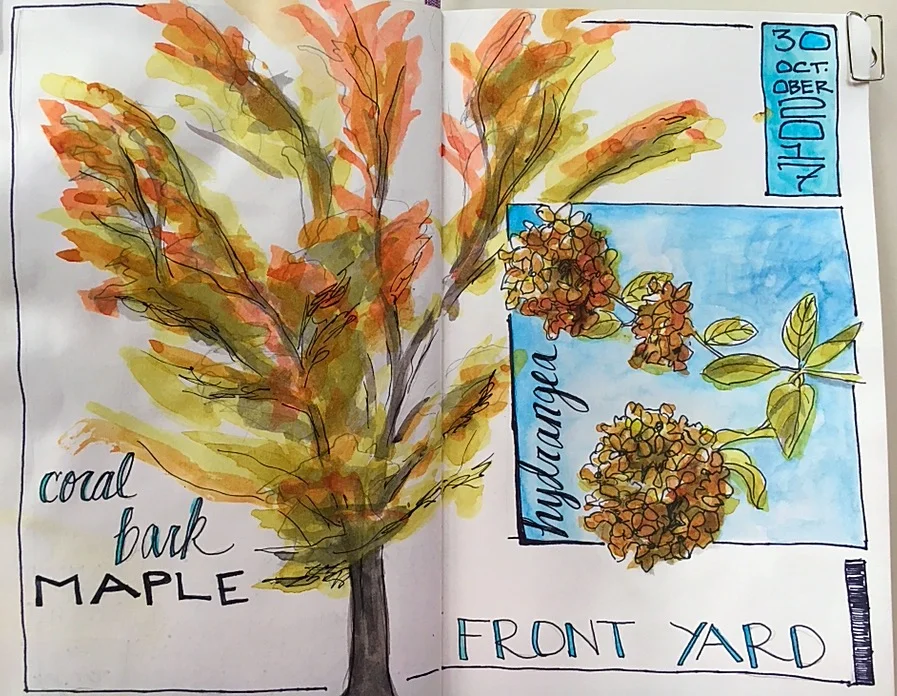 coral
bark
MAPLE
30
OCT.
OBER
hydrangea
FRONT YARD